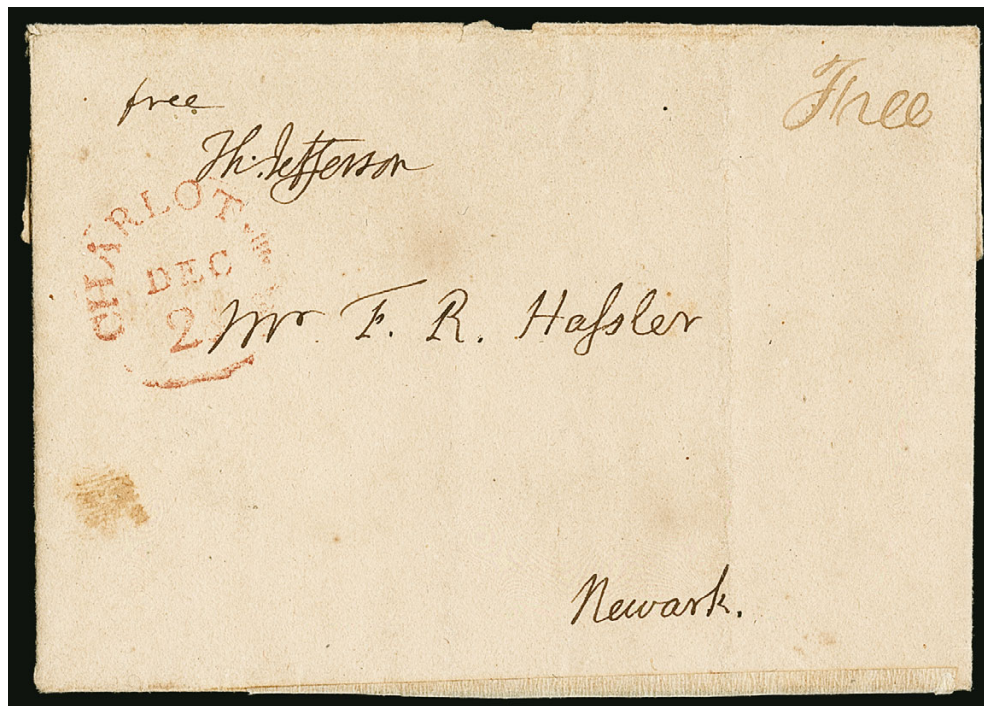 free
Free
Th: Jefferson
CHARLOT
DEC
2
Mr F. R. Haſsler
Newark.